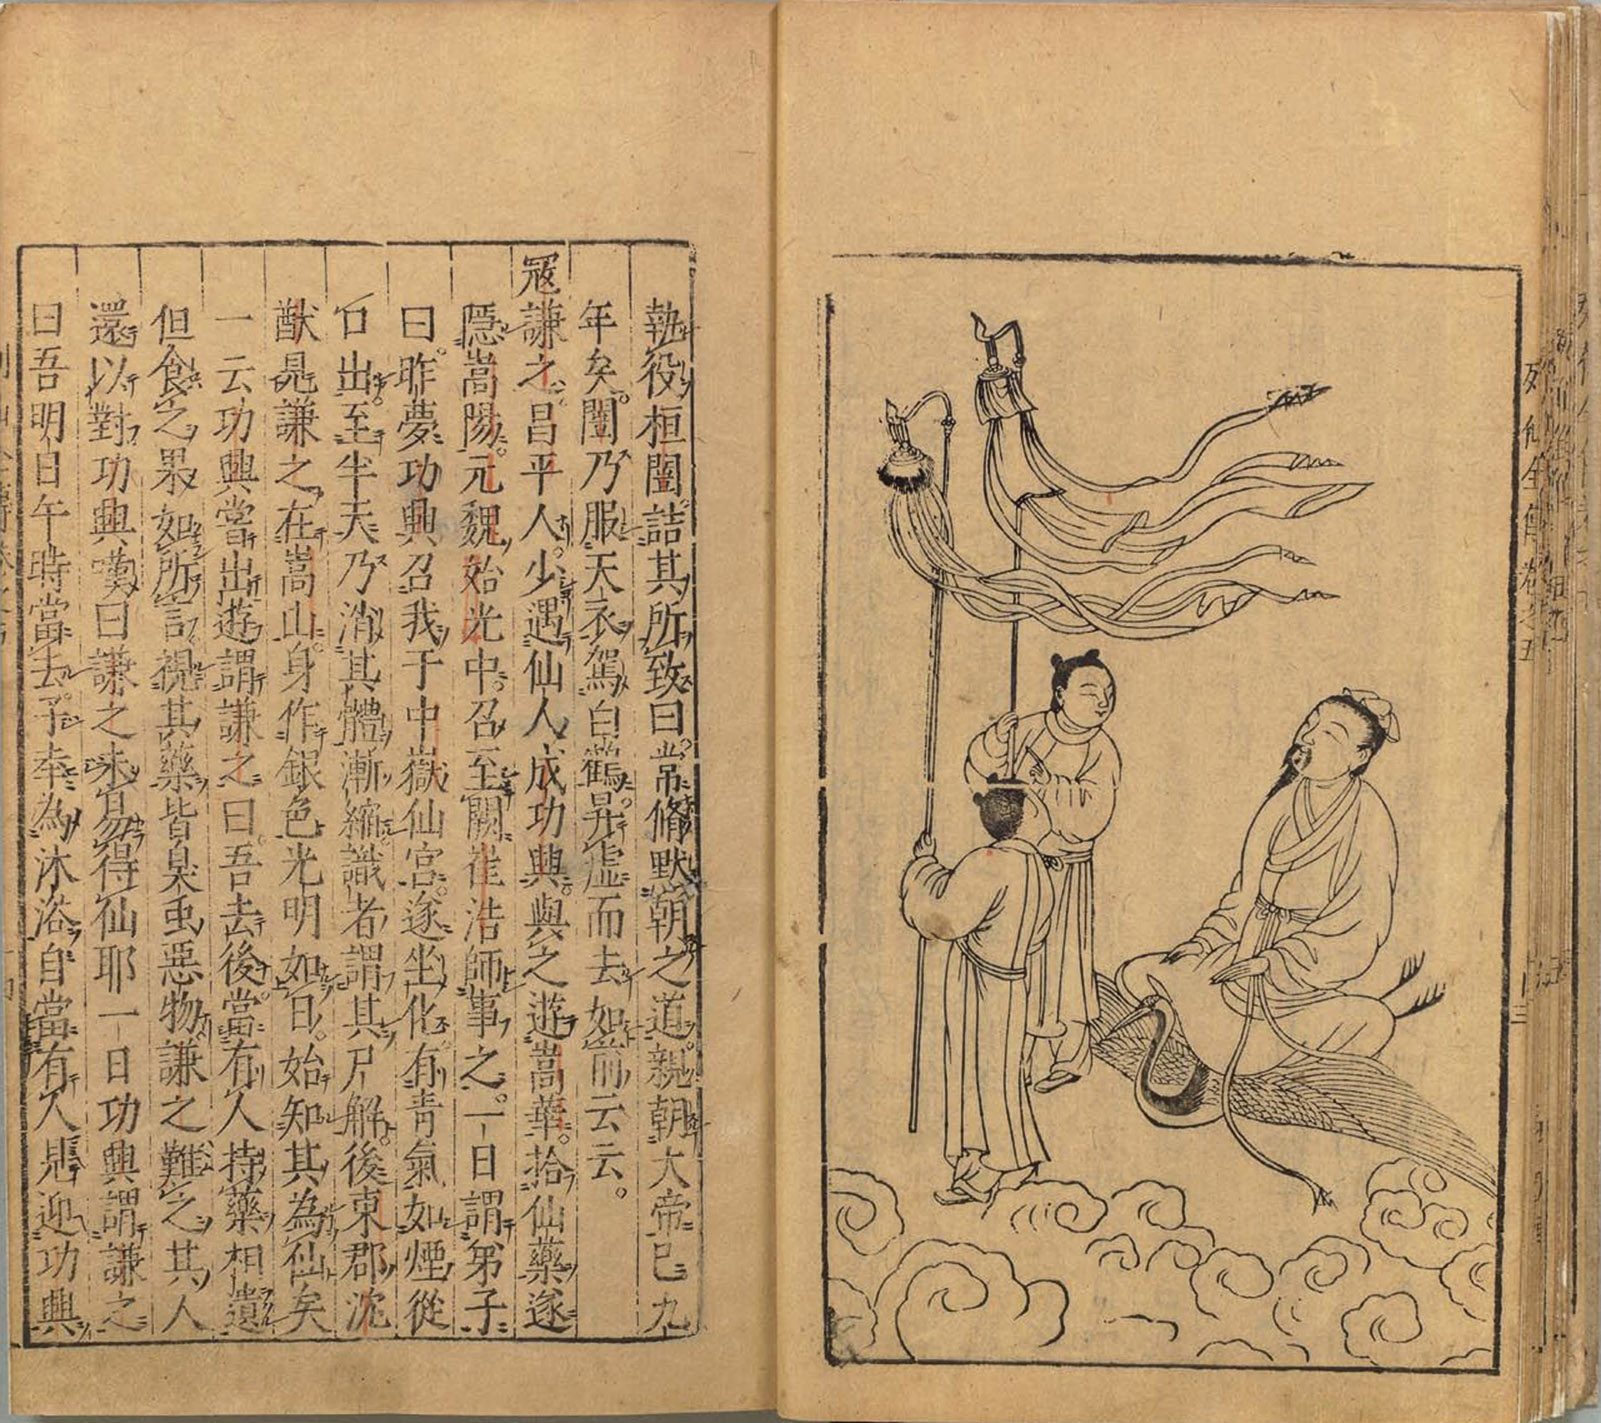 列仙全傳卷之五
十三
執役桓闓詰其所致曰常脩默朝之道親朝大帝已九
年矣闓乃服天衣駕白鶴昇虛而去如前云云。
寇謙之昌平人少遇仙人成功興與之遊嵩華拾仙藥遂
隱嵩陽元魏始光中召至闕崔浩師事之一日謂弟子
曰昨夢功興召我于中嶽仙宮遂坐化有青氣如煙從
口出至半天乃消其體漸縮識者謂其尸解後東郡沈
猷見謙之在嵩山身作銀色光明如日始知其為仙矣
一云功興當出遊謂謙之曰吾去後當有人持藥相遺
但食之果如所言視其藥皆臭虫惡物謙之難之其人
還以對功興嘆曰謙之未易得仙耶一日功興謂謙之
曰吾明日午時當去子幸為沐浴自當有人見迎功興